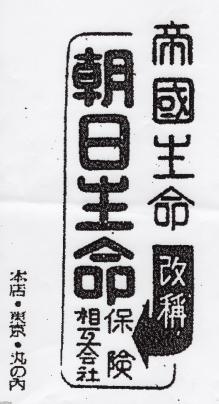 帝國生命
改稱
朝日生命
保険
相互会社
本店・東京・丸の内